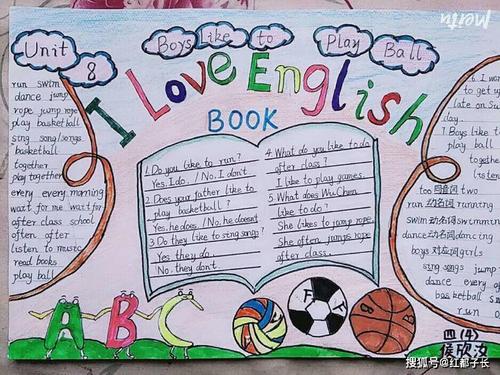 Unit 8
Boys Like to Play Ball
I Love English
BOOK
run swim
dance jump
rope jump rope
play basketball
sing song/songs
basketball
together
play together
every every morning
wait for me wait for
after class school
often after
listen to music
read books
play ball
1. Do you like to run?
Yes, I do. / No. I don't
2. Does your father like to
play basketball?
Yes, he does / No. he doesn't
3 Do they like to sing songs?
Yes they do.
No. they don't.
4. What do you like to do
after class?
I like to play games.
5 What does Wu Chen
like to do?
She likes to jump rope.
She often jumps rope
after class.
6 I wa
to get u
late on Su
day.
7 Boys like t
play ball
together
listen
too 同音词 two
run 动名词 running
swim 动名词 swimm
dance 动名词 dancing
boys 对应词 girls
sing songs jump
dance every
basketball s
run
ABC
四 (4)
搜狐号@红都子长